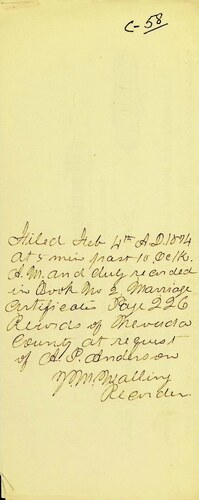 C-58
Filed Feb 4th A.D. 1884
at 5 min past 10 Oclk.
A.M. and duly recorded
in Book No 2, Marriage
Certificates Page 226
Records of Nevada
County at request
of A. P. Anderson
Recorder.